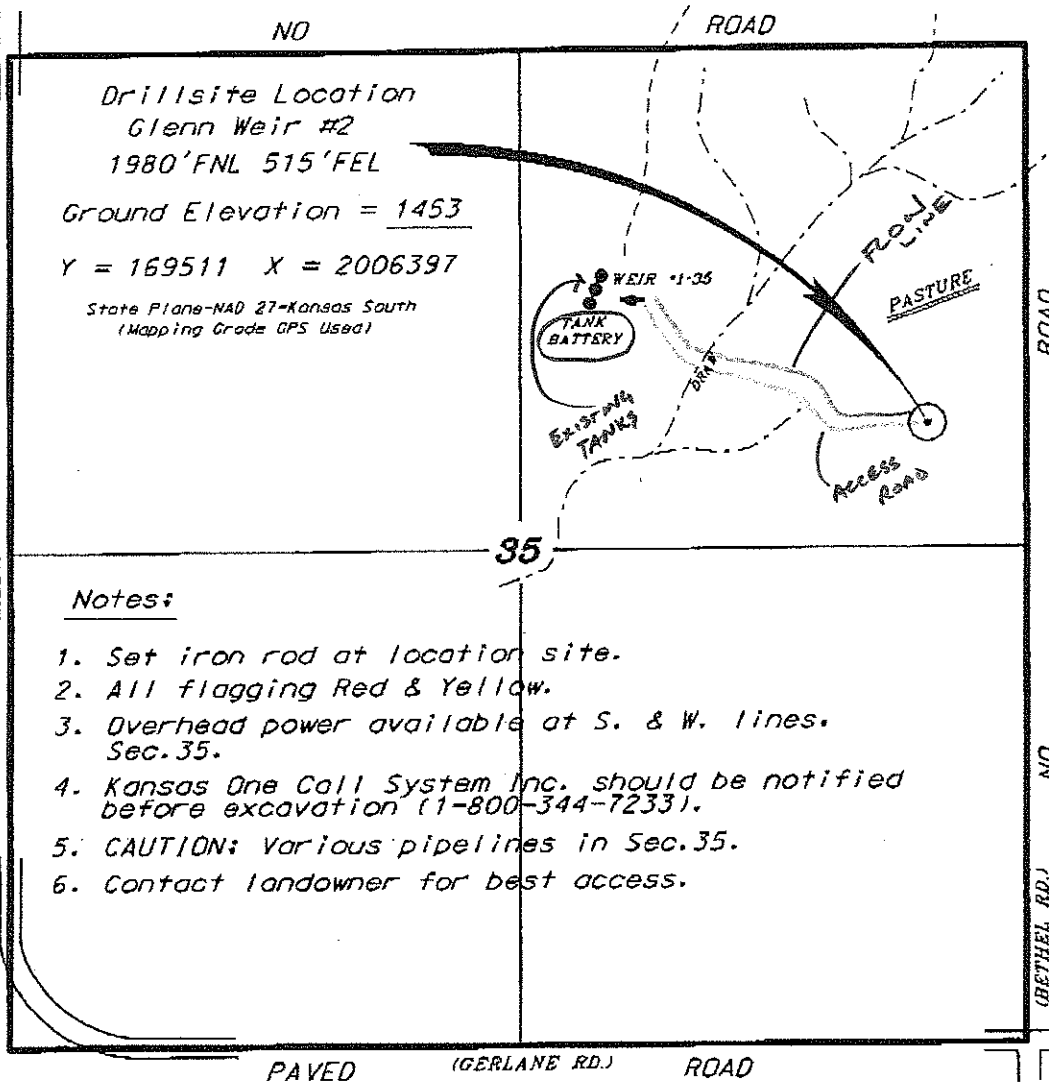 NO ROAD
Drillsite Location
Glenn Weir #2
1980'FNL 515'FEL
Ground Elevation = 1453
Y = 169511 X = 2006397
State Plane-NAD 27-Kansas South
(Mapping Grade GPS Used)
WEIR #1-35
TANK
BATTERY
EXISTING
TANKS
DRAW
FLOW
LINE
PASTURE
ACCESS
ROAD
ROAD
35
Notes:
1. Set iron rod at location site.
2. All flagging Red & Yellow.
3. Overhead power available at S. & W. lines.
Sec.35.
4. Kansas One Call System Inc. should be notified
before excavation (1-800-344-7233).
5. CAUTION: Various pipelines in Sec.35.
6. Contact landowner for best access.
NO
(BETHEL RD.)
PAVED (GERLANE RD.) ROAD